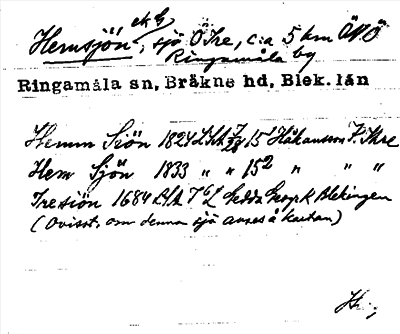 Hemsjön ek bl, sjö O Ire, c:a 5 km ÖNÖ
Ringamåla by
Ringamåla sn, Bräkne hd, Blek. län
Hemm Siön 1824 LSA 15¹ Håkansson F. Ihre
Hem Sjön 1833 " " 15² " " "
Iresiön 1684 LSA T⁶ Gedda Geogr. K Blekingen
(Ovisst, om denna sjö avses å kartan)